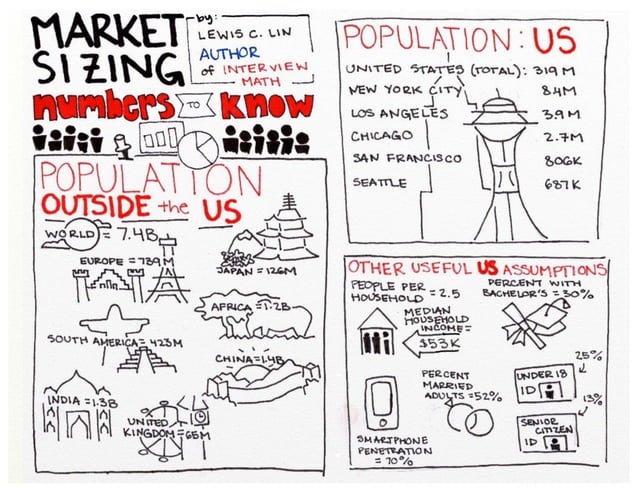 MARKET
SIZING
by:
LEWIS C. LIN
AUTHOR
of INTERVIEW
MATH
numbers TO know
POPULATION
OUTSIDE the US
WORLD = 7.4B
EUROPE = 739M
JAPAN = 126M
AFRICA = 1.2B
SOUTH AMERICA = 423M
CHINA = 1.4B
INDIA = 1.3B
UNITED
KINGDOM = 65M
POPULATION: US
UNITED STATES (TOTAL): 319M
NEW YORK CITY 8.4M
LOS ANGELES 3.9M
CHICAGO 2.7M
SAN FRANCISCO 806K
SEATTLE 687K
OTHER USEFUL US ASSUMPTIONS
PEOPLE PER
HOUSEHOLD = 2.5
PERCENT WITH
BACHELOR'S = 30%
MEDIAN
HOUSEHOLD
INCOME =
$53K
PERCENT
MARRIED
ADULTS = 52%
25%
UNDER 18
ID
13%
SENIOR
CITIZEN
ID
SMARTPHONE
PENETRATION
= 70%